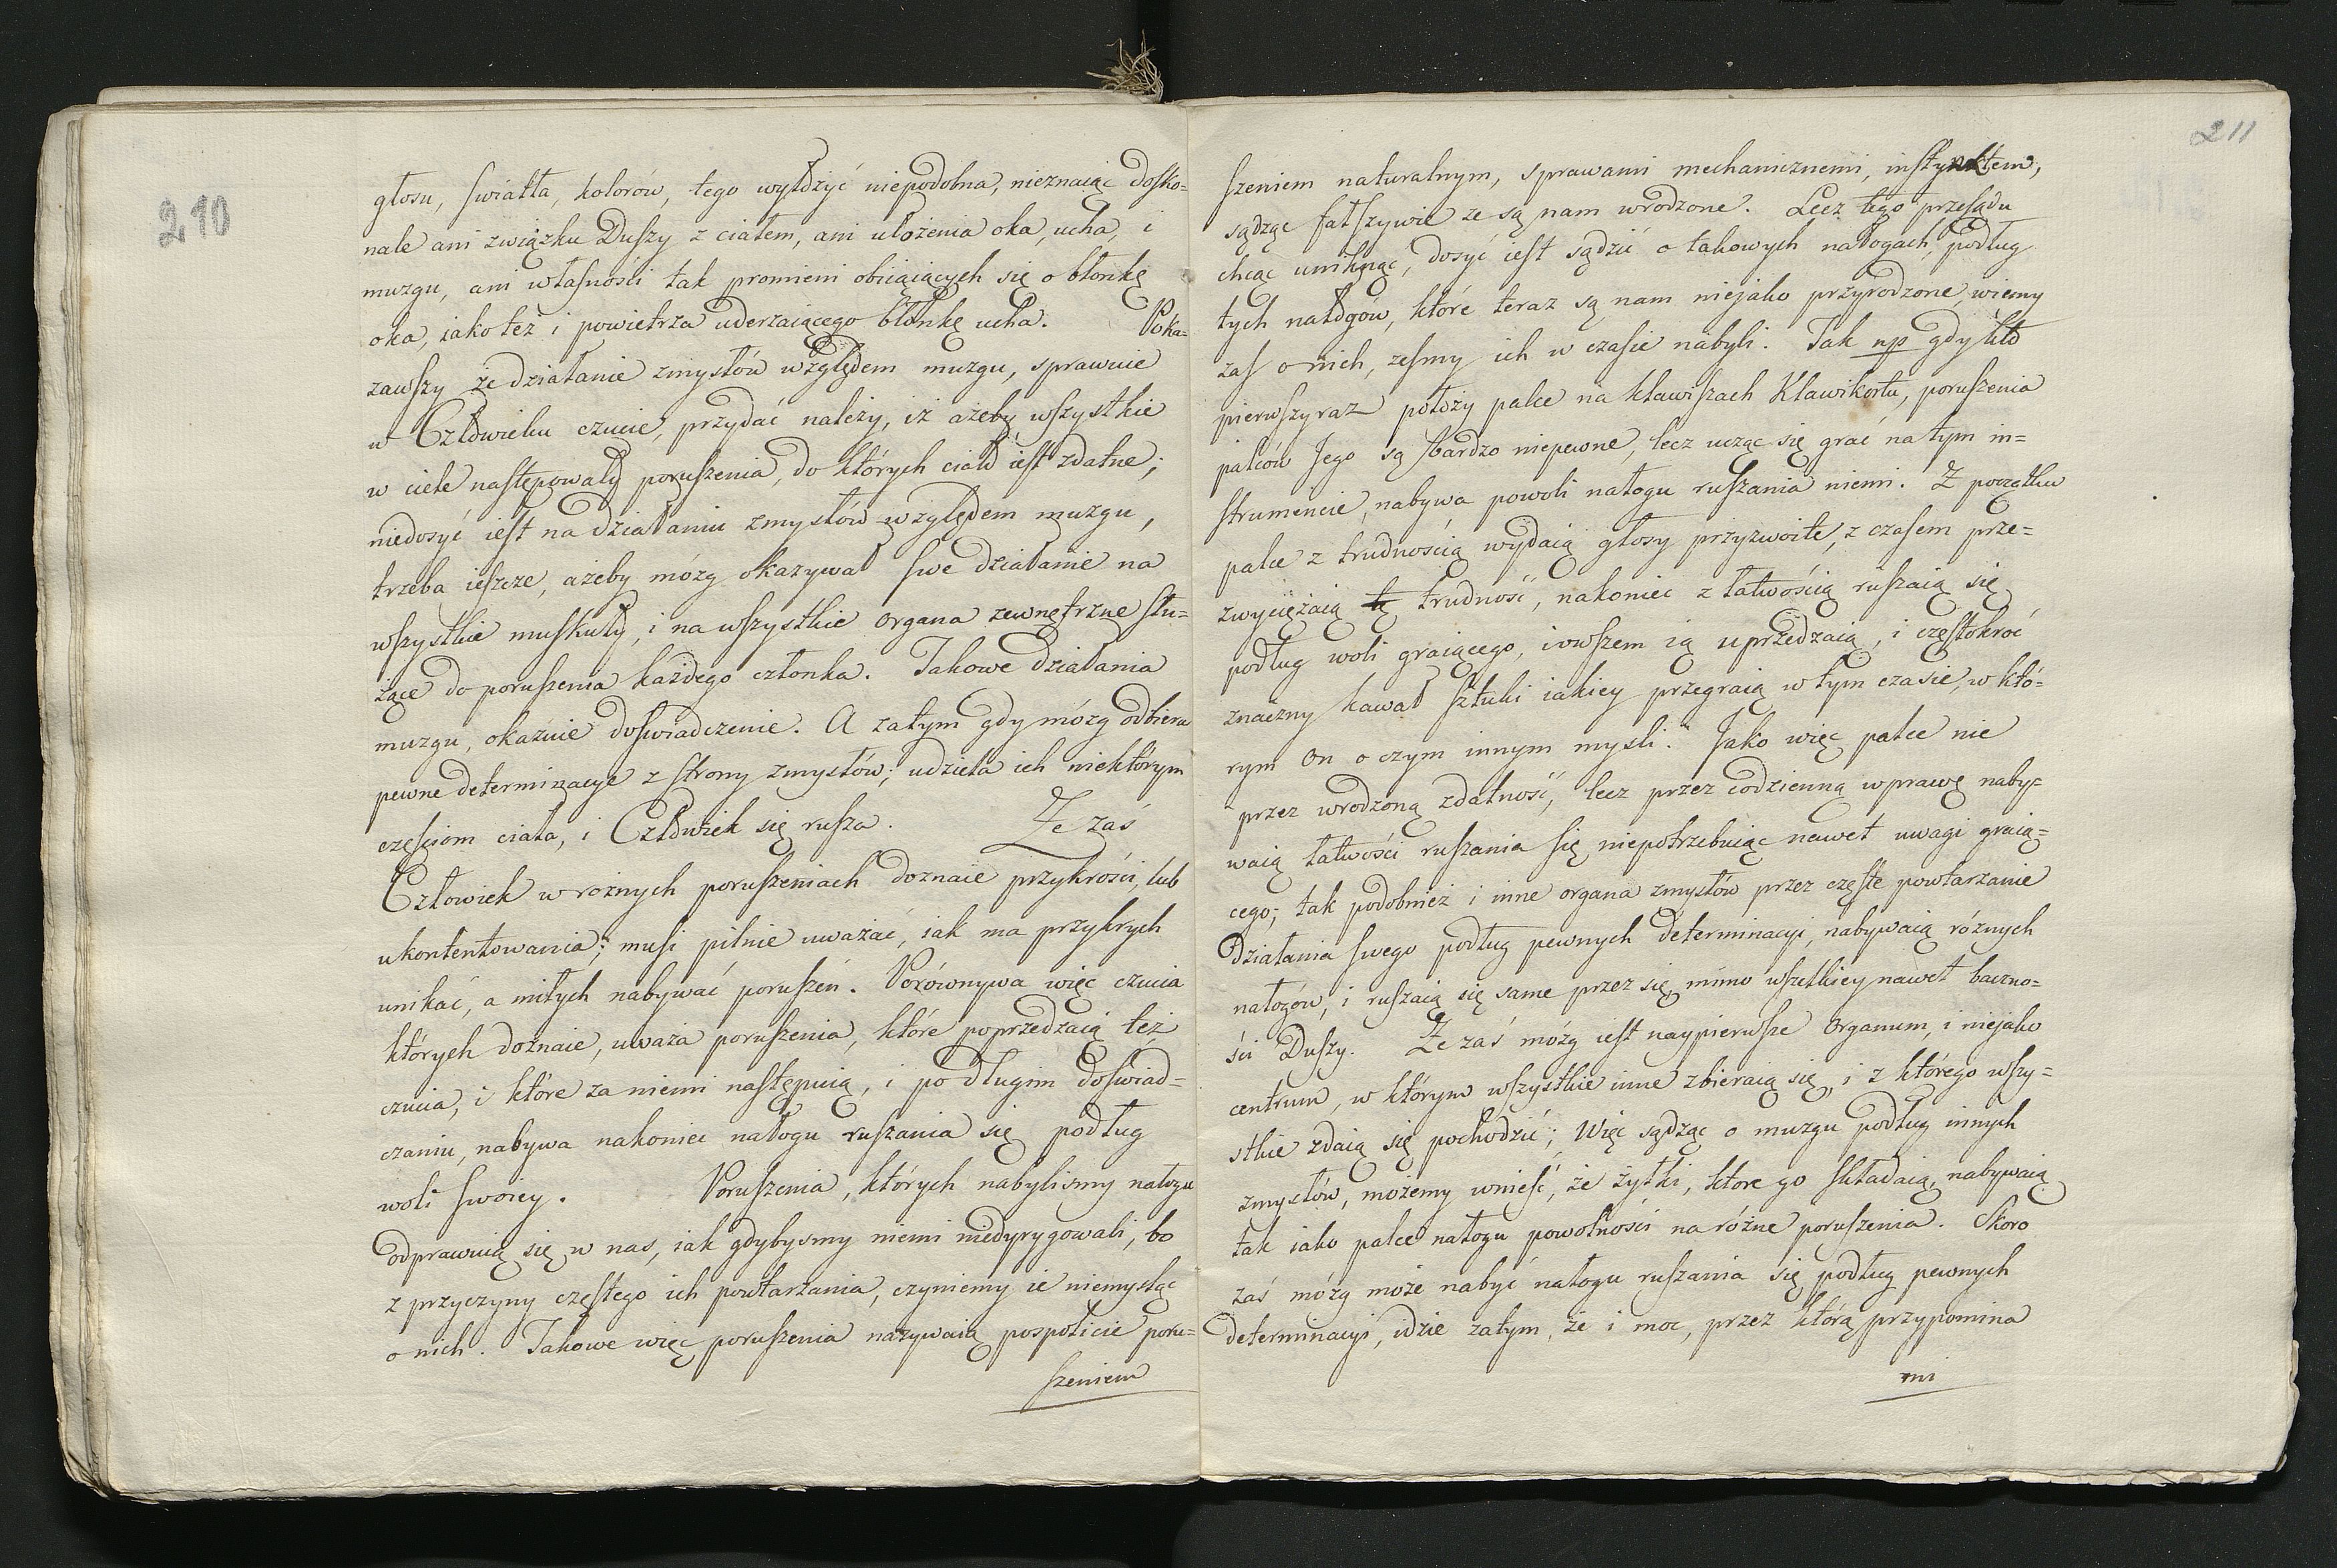 210
głosu, swiatła, kolorów, tego wyłożyć niepodobna, nieznaiąc dosko=
nale ani związku Duszy z ciałem, ani ułożenia oka, ucha, i
muzgu, ani własności tak promieni obiiąiących się o błonkę
oka, iako też i powietrza uderzaiącego błonkę ucha. Poka=
zawszy że działanie zmysłów względem muzgu, sprawuie
w Człowieku czucie, przydać należy, iż ażeby wszystkie
w ciele następowały poruszenia, do których ciało iest zdatne;
niedosyć iest na działaniu zmysłów względem muzgu,
trzeba ieszcze, ażeby mózg okazywał swe działanie na
wszystkie muskuły, i na wszystkie organa zewnętrzne słu=
żące do poruszenia każdego członka. Takowe działania
muzgu, okazuie doswiadczenie. A zatym gdy mózg odbiera
pewne determinacye z strony zmysłów; udziela ich niektórym
częściom ciała, i Człowiek się rusza. Że zaś
Człowiek w rożnych poruszeniach doznaie przykrości, lub
ukontentowania; musi pilnie uważać, iak ma przykrych
unikać, a miłych nabywać poruszeń. Porównywa więc czucia
których doznaie, uważa poruszenia, które poprzedzaią też
czucia, i które za niemi następuią, i po długim doswiad=
czaniu, nabywa nakoniec nałogu ruszania się podług
woli swoiey. Poruszenia, których nabylismy nałogu
odprawuią się w nas, iak gdybysmy niemi niedyrygowali, bo
z przyczyny częstego ich powtarzania, czyniemy ie niemysląc
o nich. Takowe więc poruszenia nazywaią pospolicie poru=
szeniem
211
szeniem naturalnym, sprawami mechanicznemi, instynktem,
sądząc fałszywie ze są nam wrodzone. Lecz tego przesądu
chcąc uniknąć, dosyć iest sądzić o takowych nałogach, podług
tych nałogów, które teraz są nam niejako przyrodzone, wiemy
zas o nich, zesmy ich w czasie nabyli. Tak np gdy kto
pierwszy raz położy palce na klawiszach Klawikortu, poruszenia
palców Jego są bardzo niepewne, lecz ucząc się grać na tym in=
strumencie, nabywa powoli nałogu ruszania niemi. Z początku
palce z trudnością wydaią głosy przyzwoite, z czasem prze=
zwyciężaią tę trudność, nakoniec z łatwością ruszaią się
podług woli graiącego, iowszem ią uprzedzaią, i częstokroć
znaczny kawał sztuki iakiey przegraią w tym czasie, w któ=
rym on o czym innym mysli. Jako więc palce nie
przez wrodzoną zdatność, lecz przez codzienną wprawę naby=
waią łatwości ruszania się niepotrzebuiąc nawet uwagi graią=
cego; tak podobnież i inne organa zmysłów przez częste powtarzanie
działania swego podług pewnych determinacyi, nabywaią różnych
nałogów, i ruszaią się same przez się mimo wszelkiey nawet baczno=
ści Duszy. Że zaś mózg iest naypierwsze organum, i niejako
centrum, w którym wszystkie inne zbieraią się, i z którego wszy=
stkie zdaią się pochodzić; Więc sądząc o muzgu podług innych
zmysłów, możemy wnieść, że żyłki, które go składaią, nabywaią
tak iako palce nałogu powolności na różne poruszenia. Skoro
zaś mózg może nabyć nałogu ruszania się podług pewnych
determinacyi, idzie zatym, że i moc, przez którą przypomina
mi